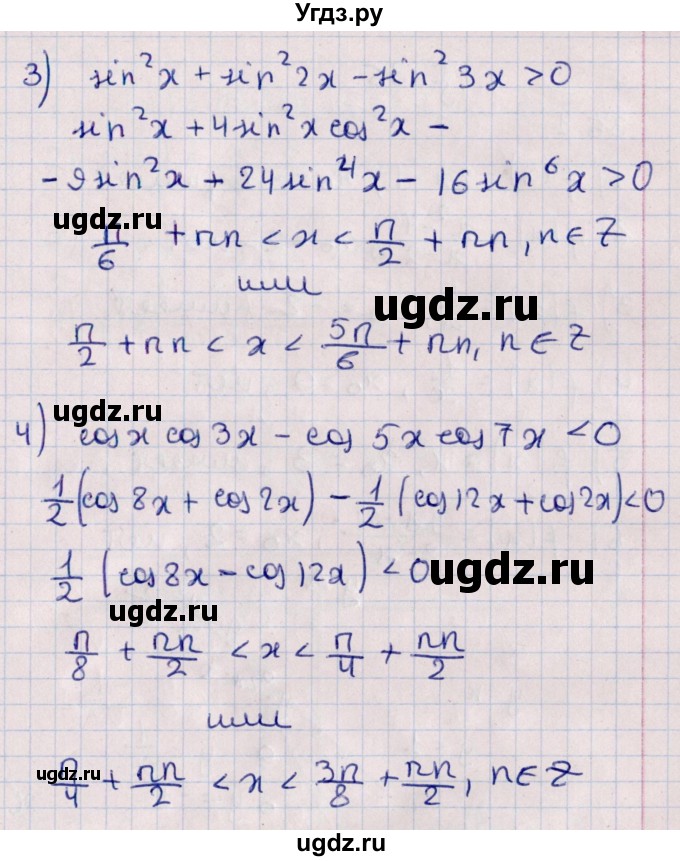 Угдз.ру
3) sin²x + sin²2x - sin²3x > 0
sin²x + 4sin²x cos²x -
- 9sin²x + 24sin⁴x - 16sin⁶x > 0
ugdz.ru
π/6 + πn < x < π/2 + πn, n ∈ Z
или
ugdz.ru
π/2 + πn < x < 5π/6 + πn, n ∈ Z
ugdz.ru
4) cos x cos 3x - cos 5x cos 7x < 0
1/2 (cos 8x + cos 2x) - 1/2 (cos 12x + cos 2x) < 0
1/2 (cos 8x - cos 12x) < 0
ugdz.ru
ugdz.ru
π/8 + πn/2 < x < π/4 + πn/2
или
ugdz.ru
π/4 + πn/2 < x < 3π/8 + πn/2, n ∈ Z
ugdz.ru